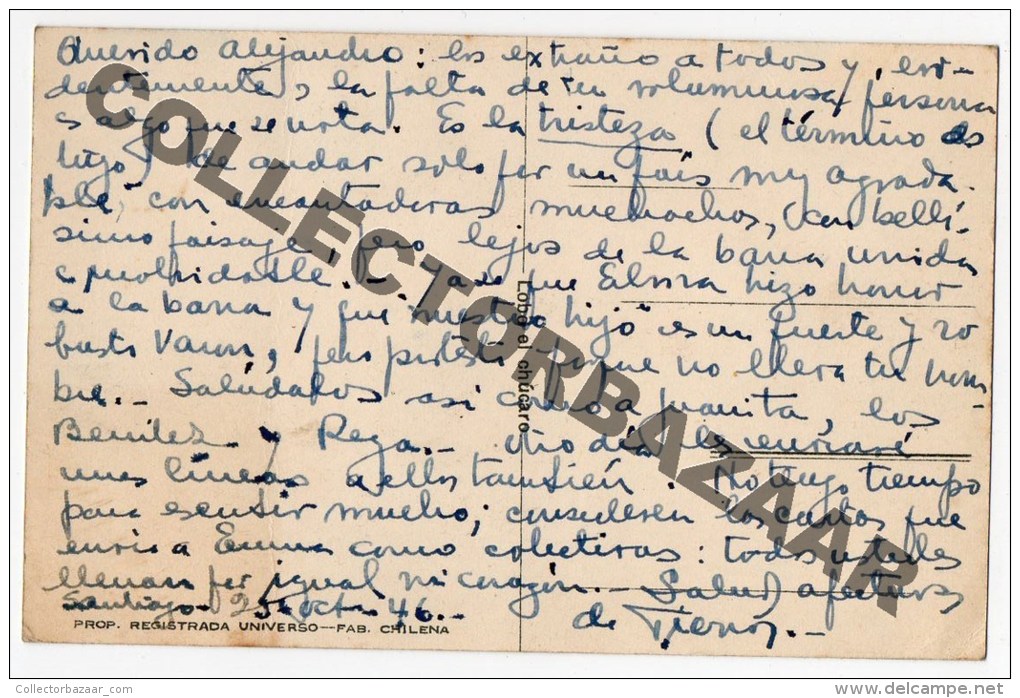 Querido Alejandro: los extraño a todos y, evi-
dentemente, la falta de tu voluminosa persona
es algo que se nota. Es la tristeza (el término es
tuyo) de andar solo por un país muy agrada-
ble, con encantadoras muchachos, con bellí-
simo paisaje, pero lejos de la barra unida
e inolvidable.- Ya se que Elvira hizo honor
a la barra y que nuestro hijo es un fuerte y ro
busto varon, pero protesto porque no lleva tu nom-
bre.- Salúdalos así como a Juanita, los
Benitez y Rega.- Otro día les enviaré
unas líneas a ellos también. No tengo tiempo
para escribir mucho; consideren las cartas que
envio a Emma como colectivas: todos ustedes
llenan por igual mi corazón.- Salud, afectuosa
de
Santiago - 25 - oct - 46.-
PROP. REGISTRADA UNIVERSO—FAB. CHILENA
Lobo el chúcaro
COLLECTORBAZAAR
Collectorbazaar_com
delcampe.net